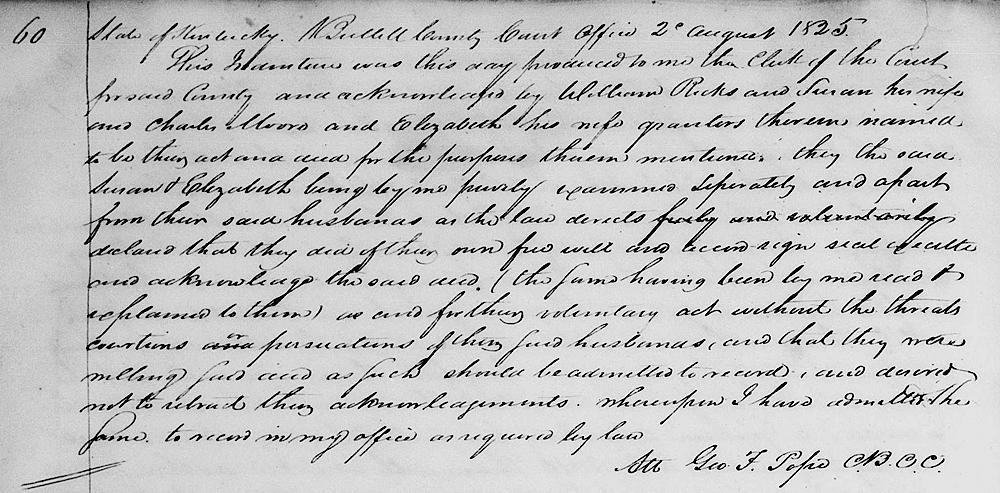 60
State of Kentucky. Bullitt County Court Office 2d August 1825.
This Indenture was this day produced to me the Clerk of the Court
for said County and acknowledged by William Ricks and Susan his wife
and Charles Moore and Elizabeth his wife grantors therein named
to be their act and deed for the purposes therein mentioned. they the said
Susan & Elizabeth being by me privily examined seperately and apart
from their said husbands as the law directs freely and voluntarily
declared that they did of their own free will and accord sign seal execute
and acknowledge the said deed. (the same having been by me read &
explained to them) as and for their voluntary act without the threats
coertions or persuations of their said husbands, and that they were
willing said deed as such should be admitted to record, and desired
not to retract their acknowledgements. whereupon I have admitted the
same to record in my office as required by law
Att Geo. F. Pope C.B.C.C.